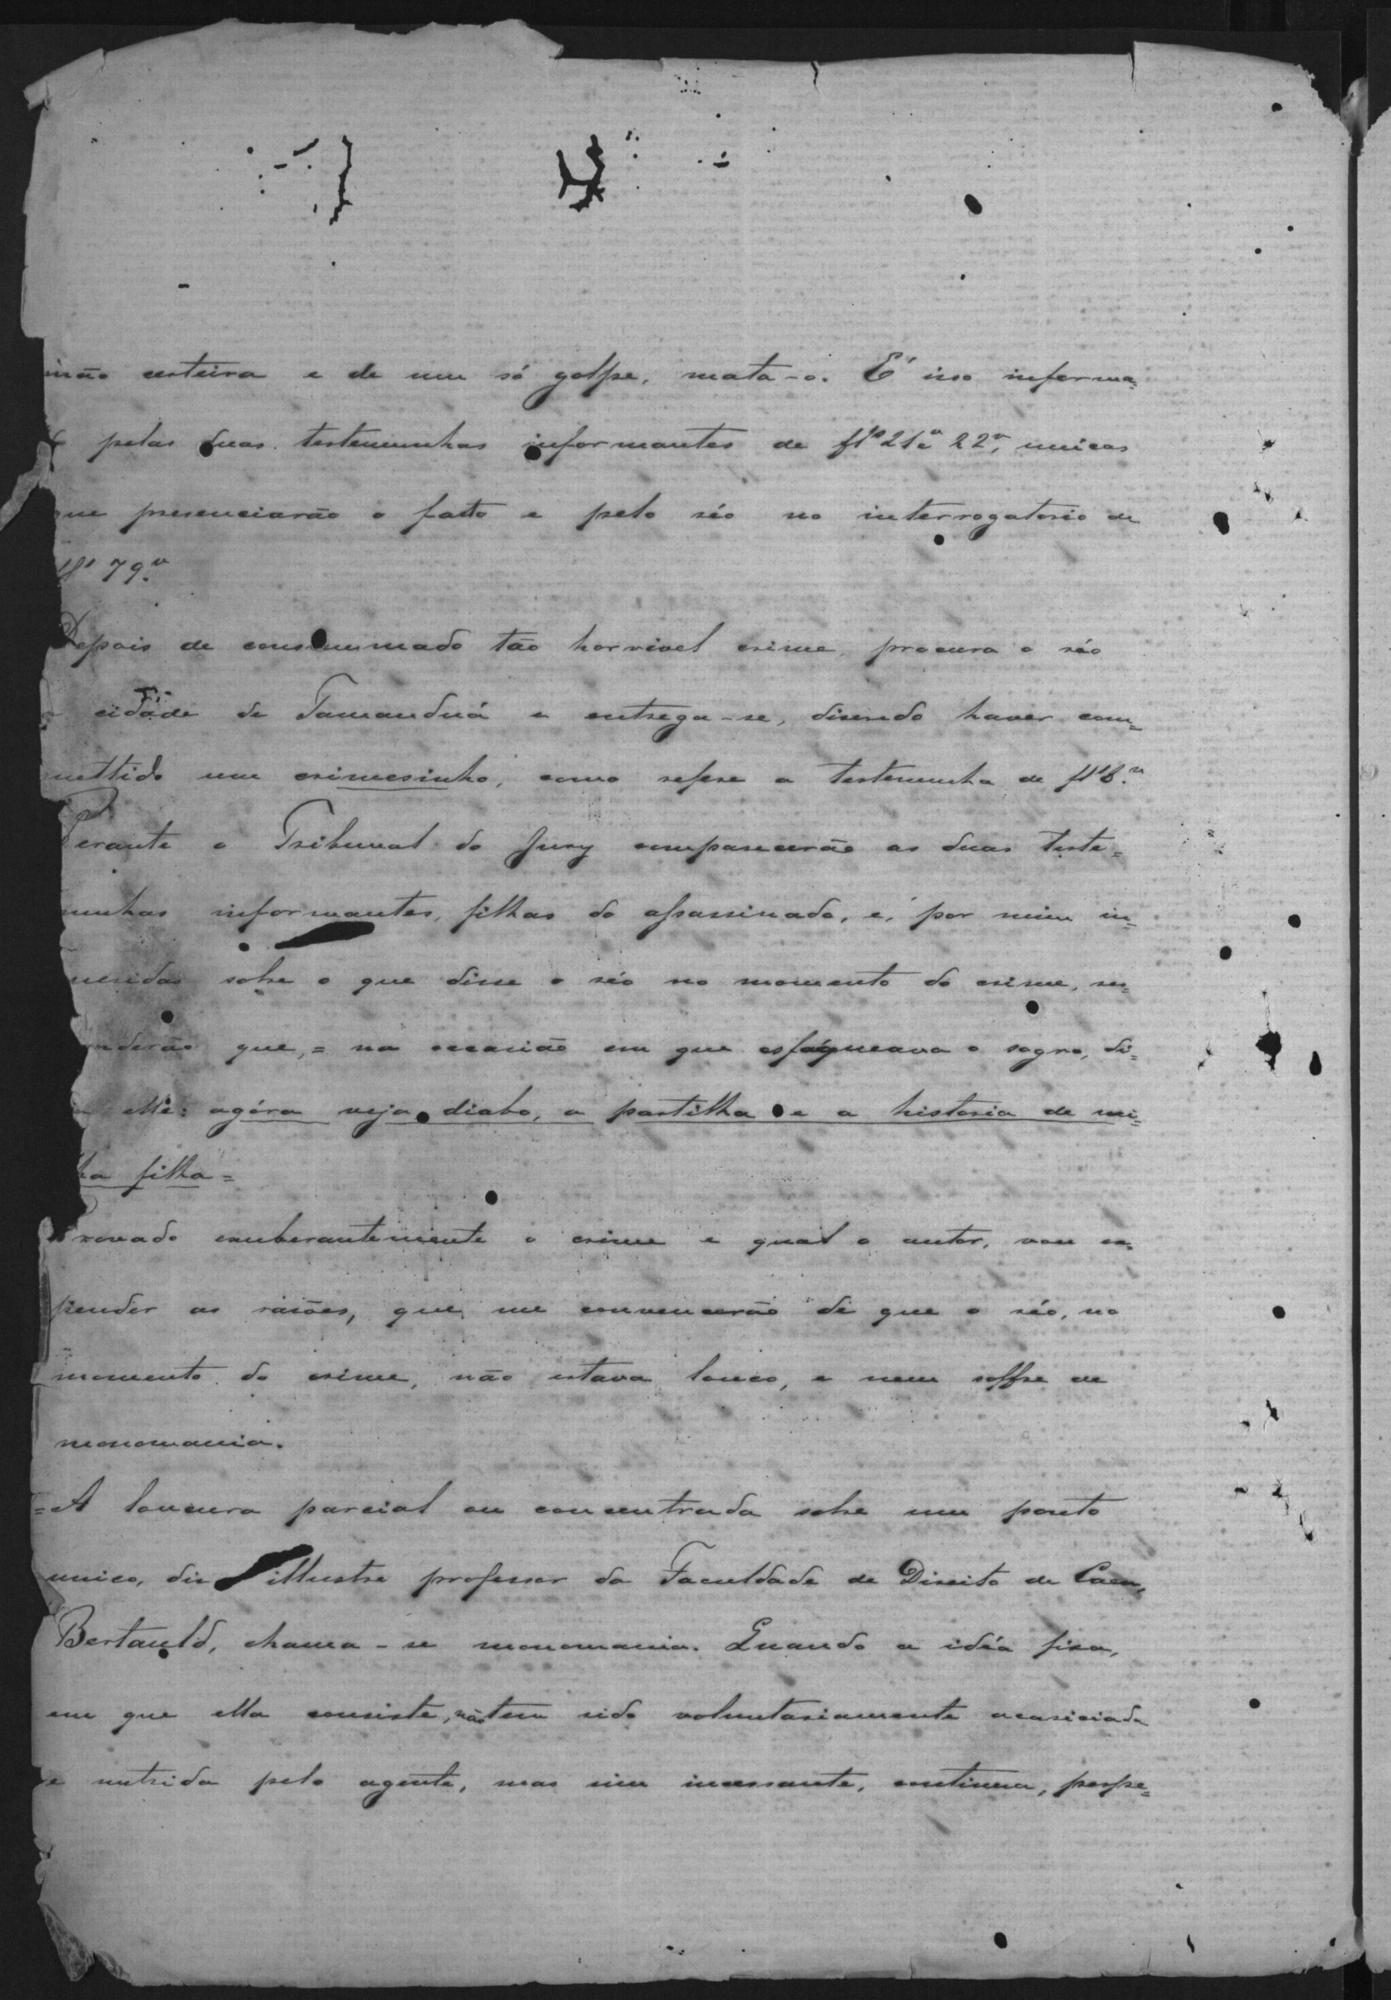 mão certeira e de um só golpe, mata-o. É isso informa=
pelas duas testemunhas informantes de fls 21 e 22v, unicas
que presenciarão o facto e pelo réo no interrogatorio de
fls 79v
Depois de consummado tão horrivel crime, procura o réo
a cidade de Tamanduá e entrega-se, disendo haver com=
mettido um crimesinho, como refere a testemunha de fls 6v
Perante o Tribunal do Jury comparecerão as duas teste=
munhas informantes, filhas do assassinado, e, por mim in=
queridas sobre o que disse o réo no momento do crime, res=
ponderão que, = na occasião em que esfaqueava o sogro, di=
elle: agóra veja diabo, a partilha e a historia de mi=
nha filha =
Provado exuberantemente o crime e qual o autor, vou ex=
pender as rasões, que me convencerão de que o réo, no
momento do crime, não estava louco, e nem soffre de
monomania.
= A loucura parcial ou concentrada sobre um ponto
unico, dis illustre professor da Faculdade de Direito de Caen,
Bertauld, chama-se monomania. Quando a idéa fixa,
em que ella consiste, não tem sido voluntariamente acariciada
e nutrida pelo agente, mas sim incessante, continua, perpe=